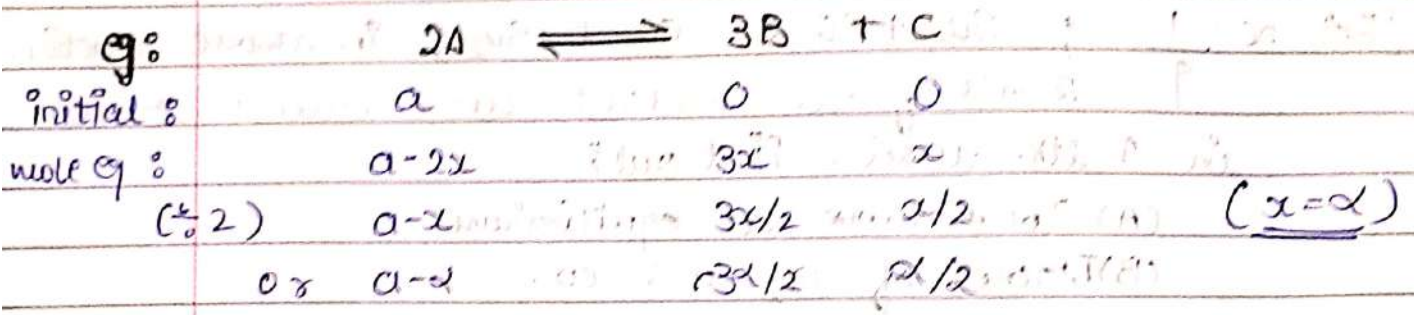 eg: 2A ⇌ 3B + C
initial: a 0 0
mole eq: a-2x 3x x
(÷2) a-x 3x/2 x/2 (x=α)
or a-α 3α/2 α/2